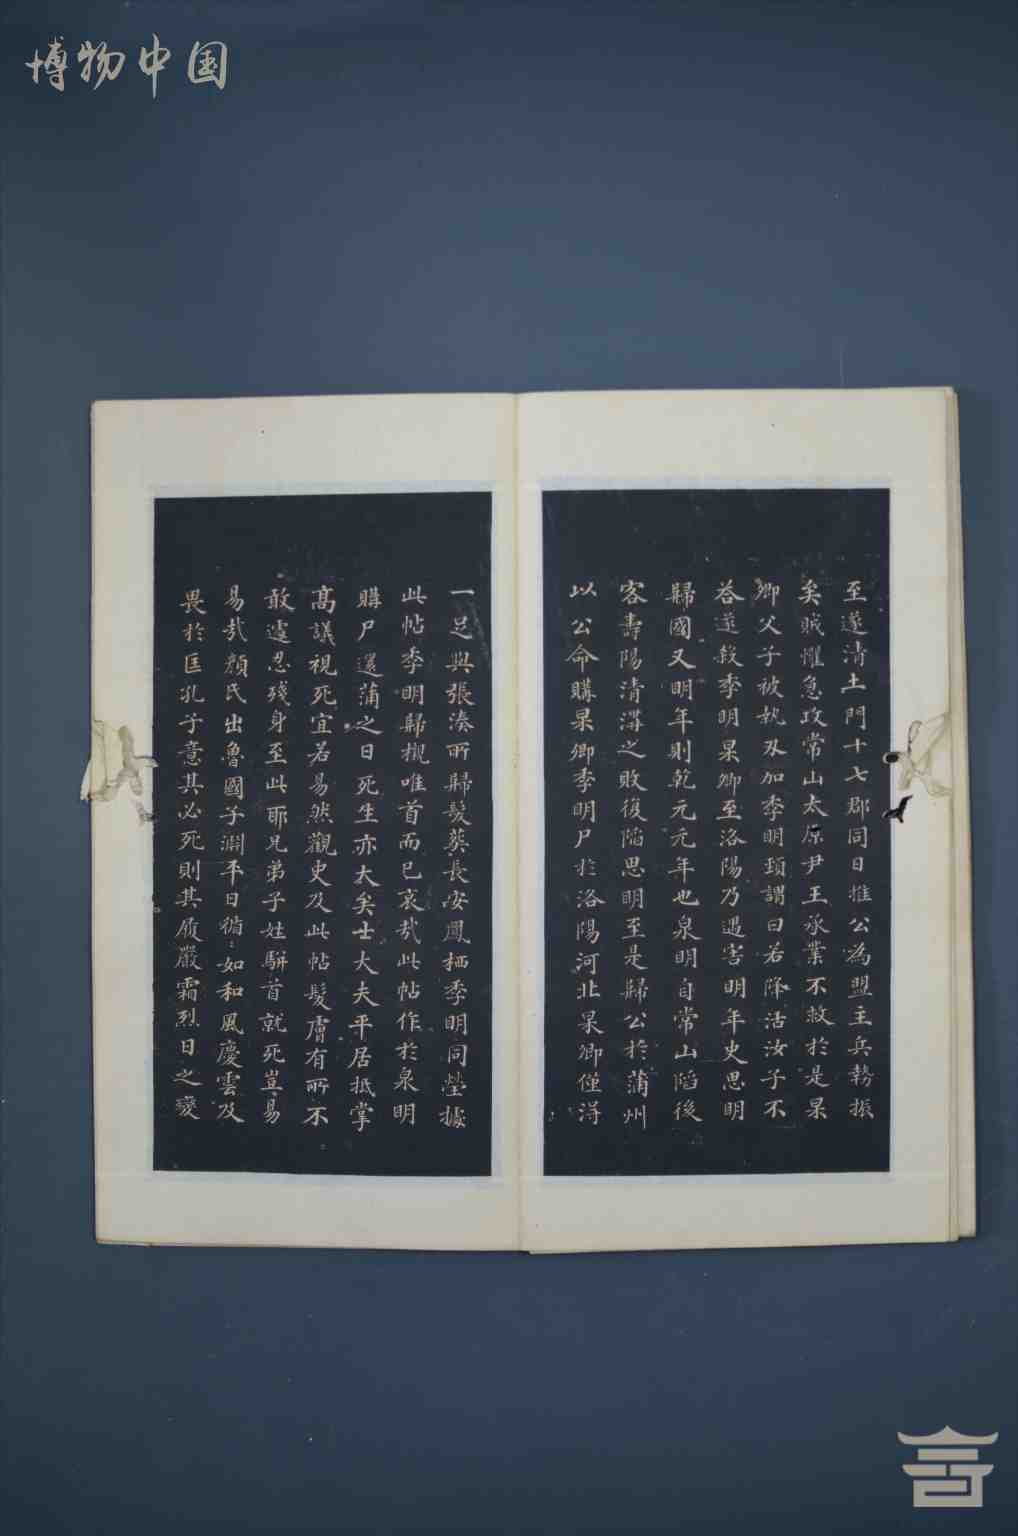 博物中国
至遂清土門十七郡同日推公為盟主兵勢振
矣賊懼急攻常山太原尹王承業不救於是杲
卿父子被執刃加季明頸謂曰若降活汝子不
荅遂殺季明杲卿至洛陽乃遇害明年史思明
歸國又明年則乾元元年也泉明自常山陷後
客壽陽清溝之敗復陷思明至是歸公於蒲州
以公命購杲卿季明尸於洛陽河北杲卿僅得
一足與張湊所歸髮葬長安鳳栖季明同塋據
此帖季明歸櫬唯首而已哀哉此帖作於泉明
購尸還蒲之日死生亦大矣士大夫平居抵掌
高議視死宜若易然觀史及此帖髮膚有所不
敢遽忍殘身至此耶兄弟子姓駢首就死豈易
易哉顏氏出魯國子淵平日循:如和風慶雲及
畏於匡孔子意其必死則其履嚴霜烈日之變